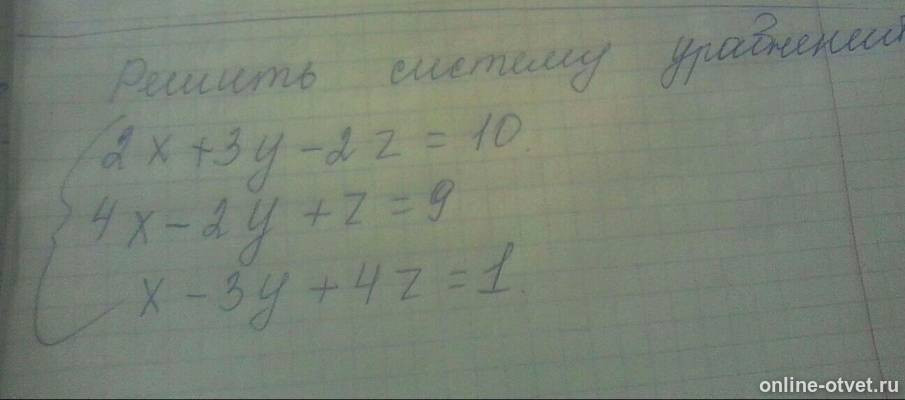 Решить систему уравнений
2x+3y-2z=10.
4x-2y+z=9
x-3y+4z=1.
online-otvet.ru